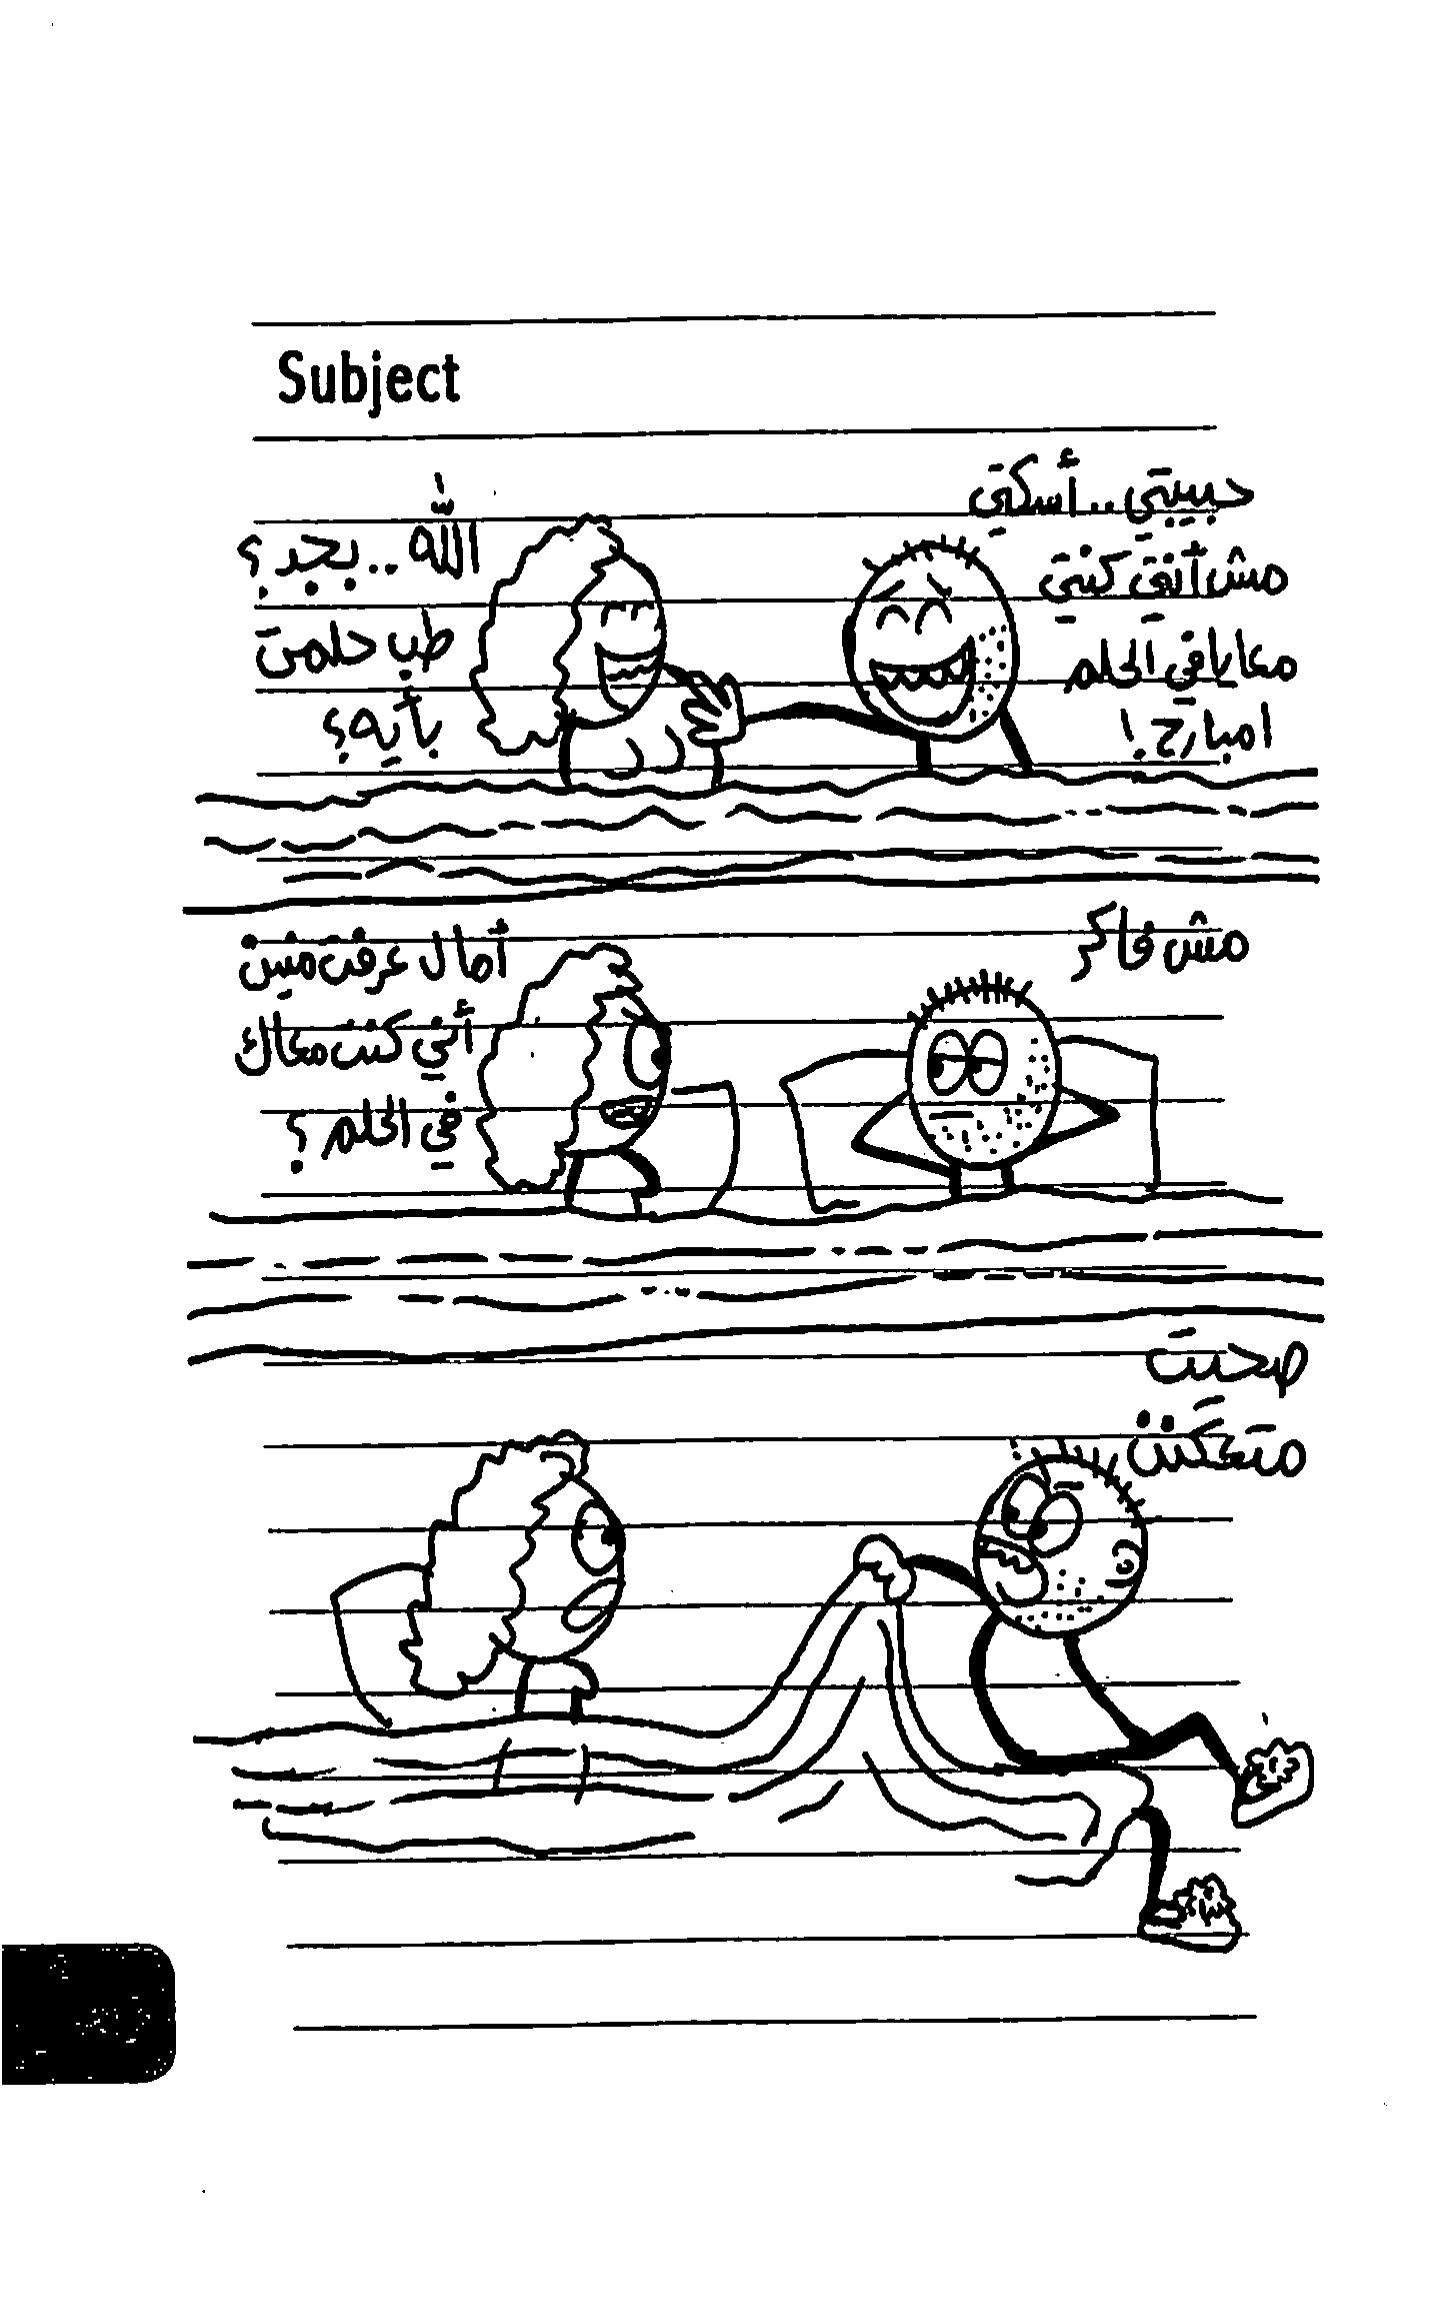 Subject
حبيبتي.. أسكتي
مش أنتي كنتي
معايا في الحلم
امبارح!
الله.. بجد؟
طب حلمت
بأيه؟
مش فاكر
أمال عرفت منين
أني كنت معاك
في الحلم؟
صحيت
متعكنن